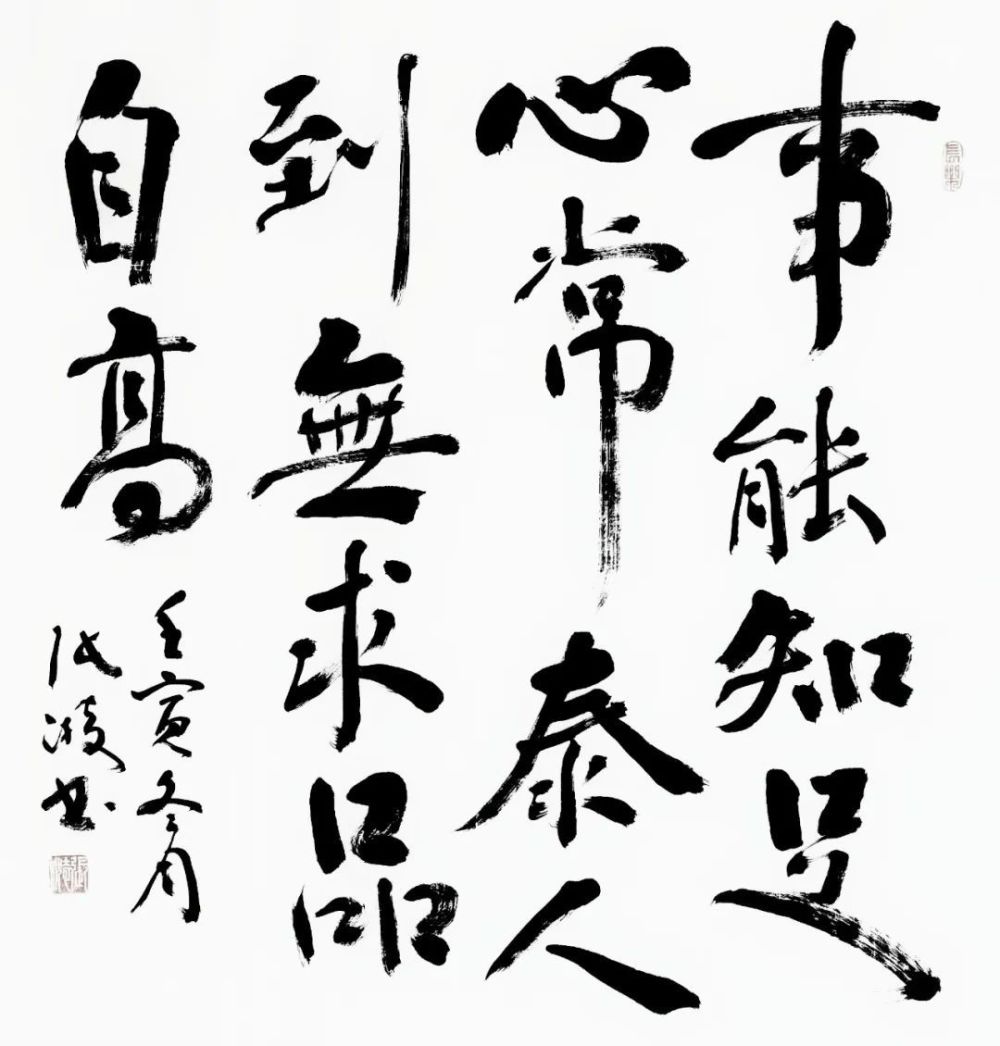 事能知足
心常泰人
到無求品
自高
壬寅冬月
張凌書